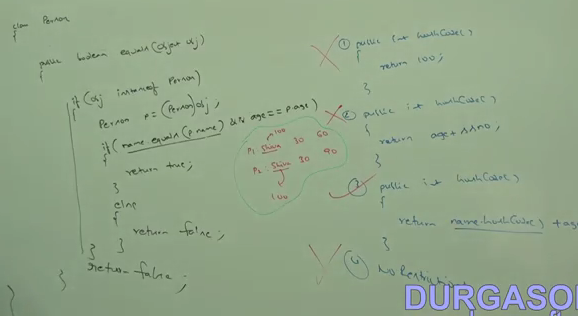 class Person
{
public boolean equals(Object obj)
{
if(obj instanceof Person)
{
Person p = (Person)obj;
if(name.equals(p.name) && age == p.age)
{
return true;
}
else
{
return false;
}
}
return false;
}
}
100
p1 Shiva 30 60
p2 Shiva 30 40
100
① public int hashCode()
{
return 100;
}
② public int hashCode()
{
return age +
}
③ public int hashCode()
{
return name.hashCode() + ag
}
④ No Restrictions
DURGASO